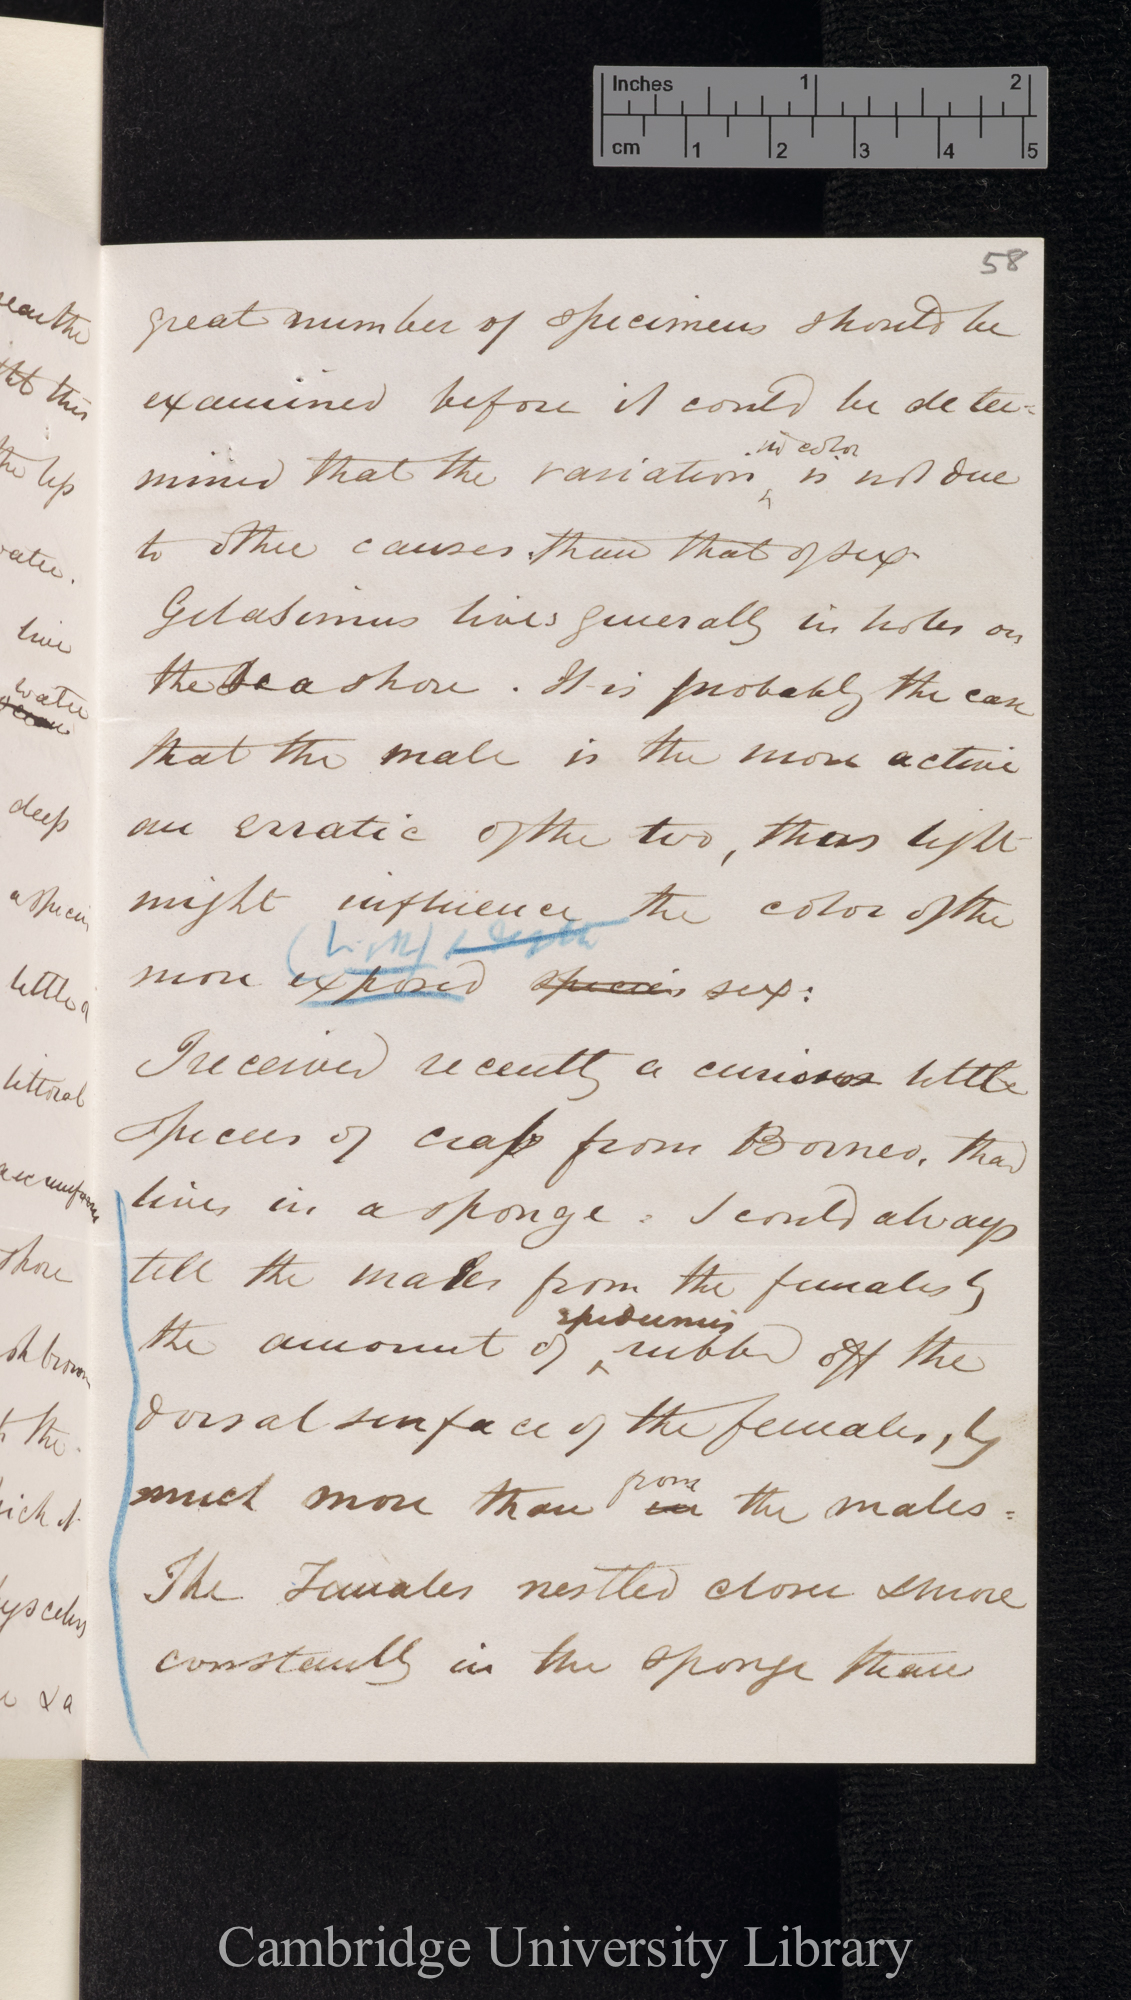 Inches 1 2
cm 1 2 3 4 5
58
great number of specimens should be
examined before it could be deter=
mined that the variation in color is not due
to other causes than that of sex
Gelasimus lives generally in holes on
the sea shore. It is probably the case
that the male is the more active
an erratic of the two, thus light
might influence the color of the
(light) & depth
more exposed species sex:
I received recently a curious little
species of crab from Borneo, that
lives in a sponge = I could always
tell the males from the females by
the amount of epidermis rubbed off the
dorsal surface of the females, by
much more than from in the males =
The Females nestled closer & more
constantly in the sponge than
near the
this
the
water.
live
water
deep
a specie
little
littoral
shore
sh brown
the
& a
Cambridge University Library